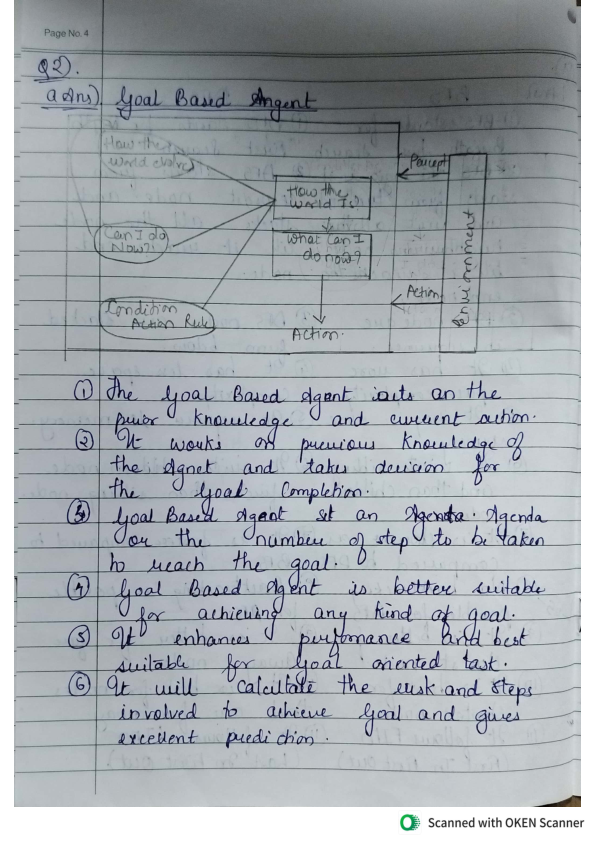 Page No. 4
Q2).
a Ans) Goal Based Angent
How the
World evolves
Percept
How the
World Is?
Can I do
Now?!
What Can I
do now?
Environment
Action
Condition
Action Rule
Action.
① The Goal Based Agent acts on the
prior knowledge and current action.
② It works on previous knowledge of
the Agnet and takes decision for
the Goal Completion.
③ Goal Based Agent set an Agenda. Agenda
or the number of step to be taken
to reach the goal.
④ Goal Based Agent is better suitable
for achieving any kind of goal.
⑤ It enhances perfomance and best
suitable for Goal oriented task.
⑥ It will calculate the risk and steps
involved to achieve Goal and gives
excellent prediction.
Scanned with OKEN Scanner